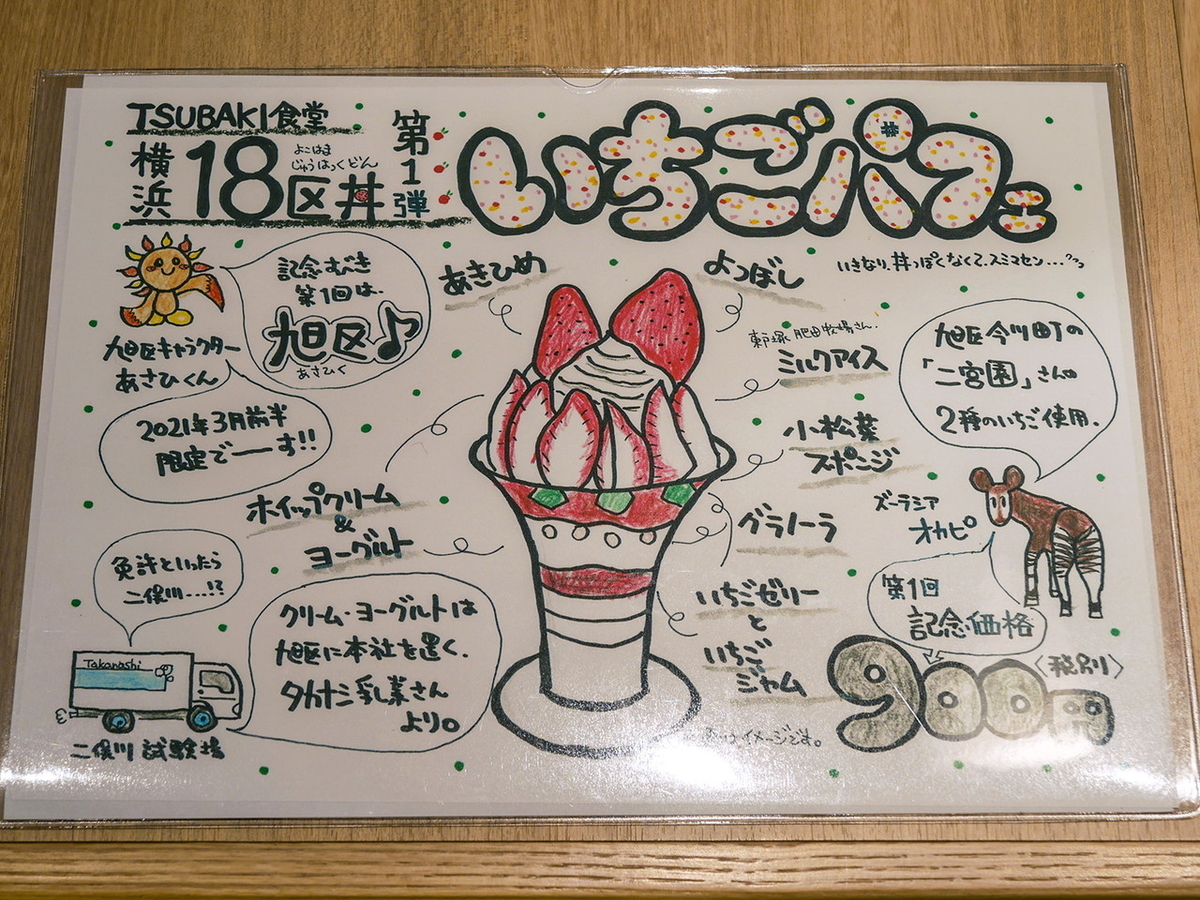 TSUBAKI食堂
横浜
18区丼
よこはま
じゅうはっくどん
第1弾
いちごパフェ
いきなり、丼っぽくなくて、スミマセン…
旭区キャラクター
あさひくん
記念すべき
第1回は、
旭区♪
あさひく
2021年3月前半
限定でーーす!!
あきひめ
よつぼし
戸塚 肥田牧場さん.
ミルクアイス
小松菜
スポンジ
グラノーラ
いちごゼリー
と
いちご
ジャム
ホイップクリーム
&
ヨーグルト
旭区今川町の
「二宮園」さんの
2種のいちご使用.
ズーラシア
オカピ
第1回
記念価格
900円
〈税別〉
免許といったら
二俣川……!?
Takanashi
二俣川 試験場
クリーム・ヨーグルトは
旭区に本社を置く、
タカナシ乳業さん
より。
イメージです。